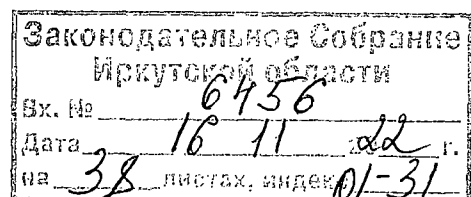 Законодательное Собрание
Иркутской области
Вх. № 6456
Дата 16 11 2022 г.
на 38 листах, индекс 01-31